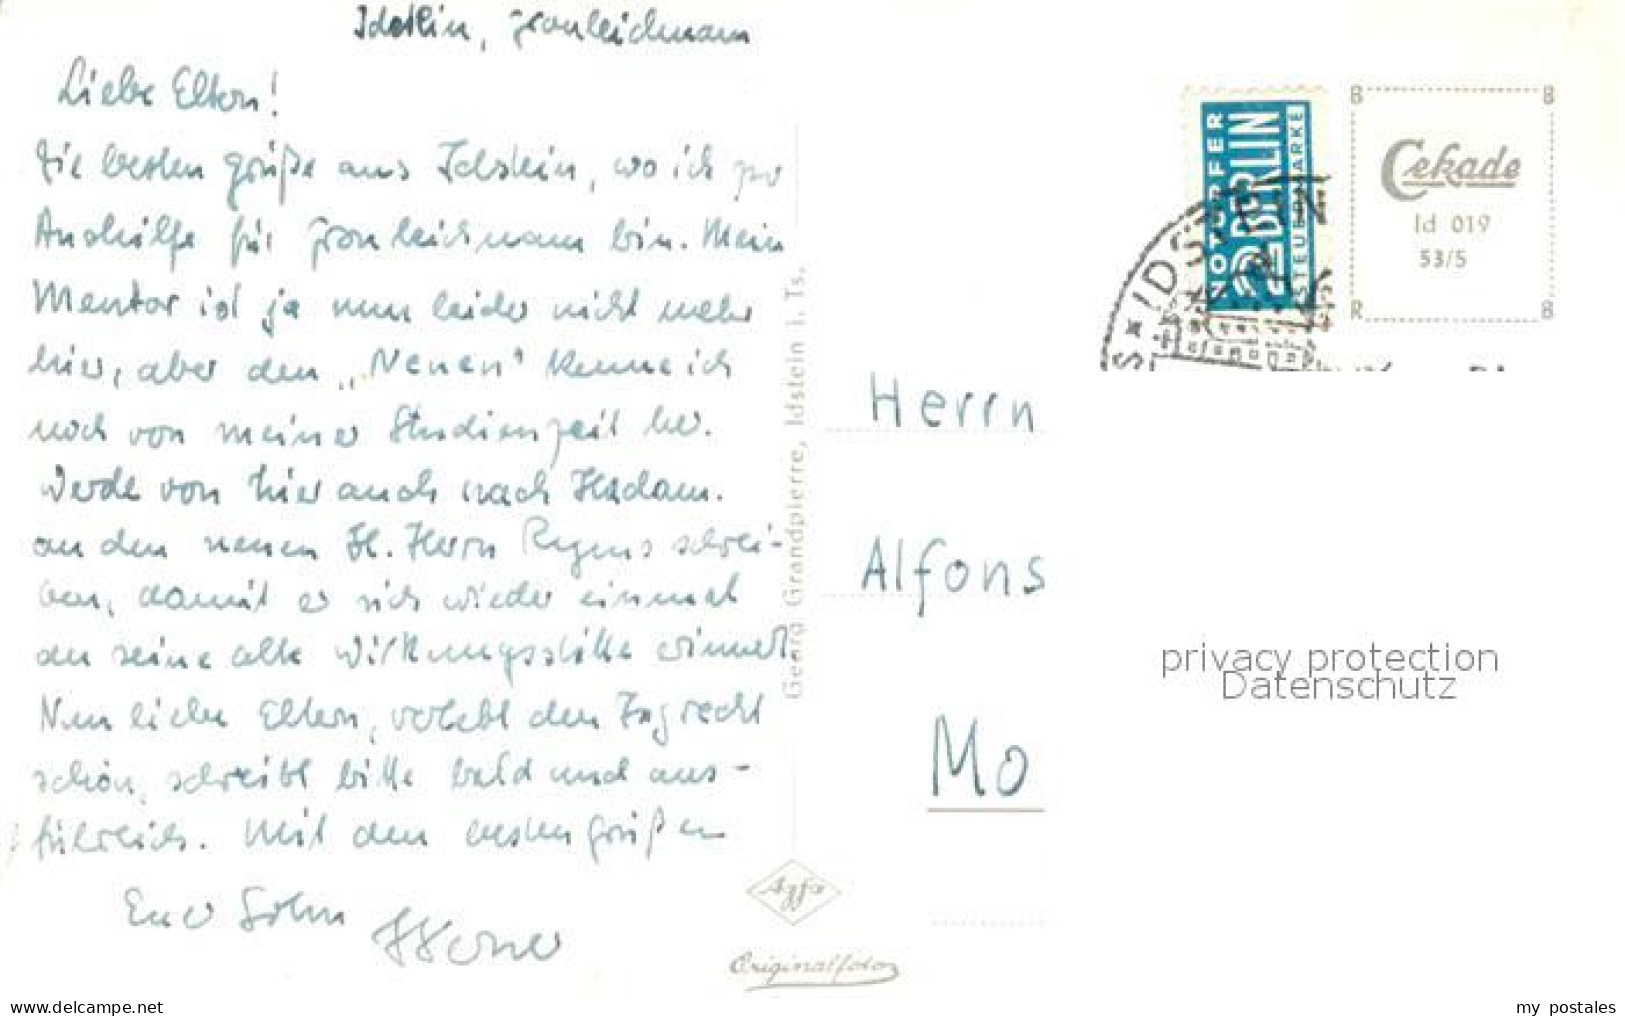 Idstein, Fronleichnam
Liebe Eltern!
Die besten Grüße aus Idstein, wo ich zu
Aushilfe für Fronleichnam bin. Mein
Mentor ist ja nun leider nicht mehr
hier, aber den „Neuen“ kenne ich
noch von meiner Studienzeit her.
Werde von hier auch nach Hadam.
an den neuen H. Herrn Regens schrei-
ben, damit er sich wieder einmal
an seine alte Wirkungsstätte erinnert.
Nun liebe Eltern, verlebt den Tag recht
schön, schreibt bitte bald und aus-
führlich. Mit den besten Grüßen
Euer Sohn
Georg Grandpierre, Idstein i. Ts.
Agfa
Originalfoto
NOTOPFER
2 BERLIN
STEUERMARKE
IDST
B B
Cekade
Id 019
53/5
R B
Herrn
Alfons
Mo
privacy protection
Datenschutz
www.delcampe.net
my_postales